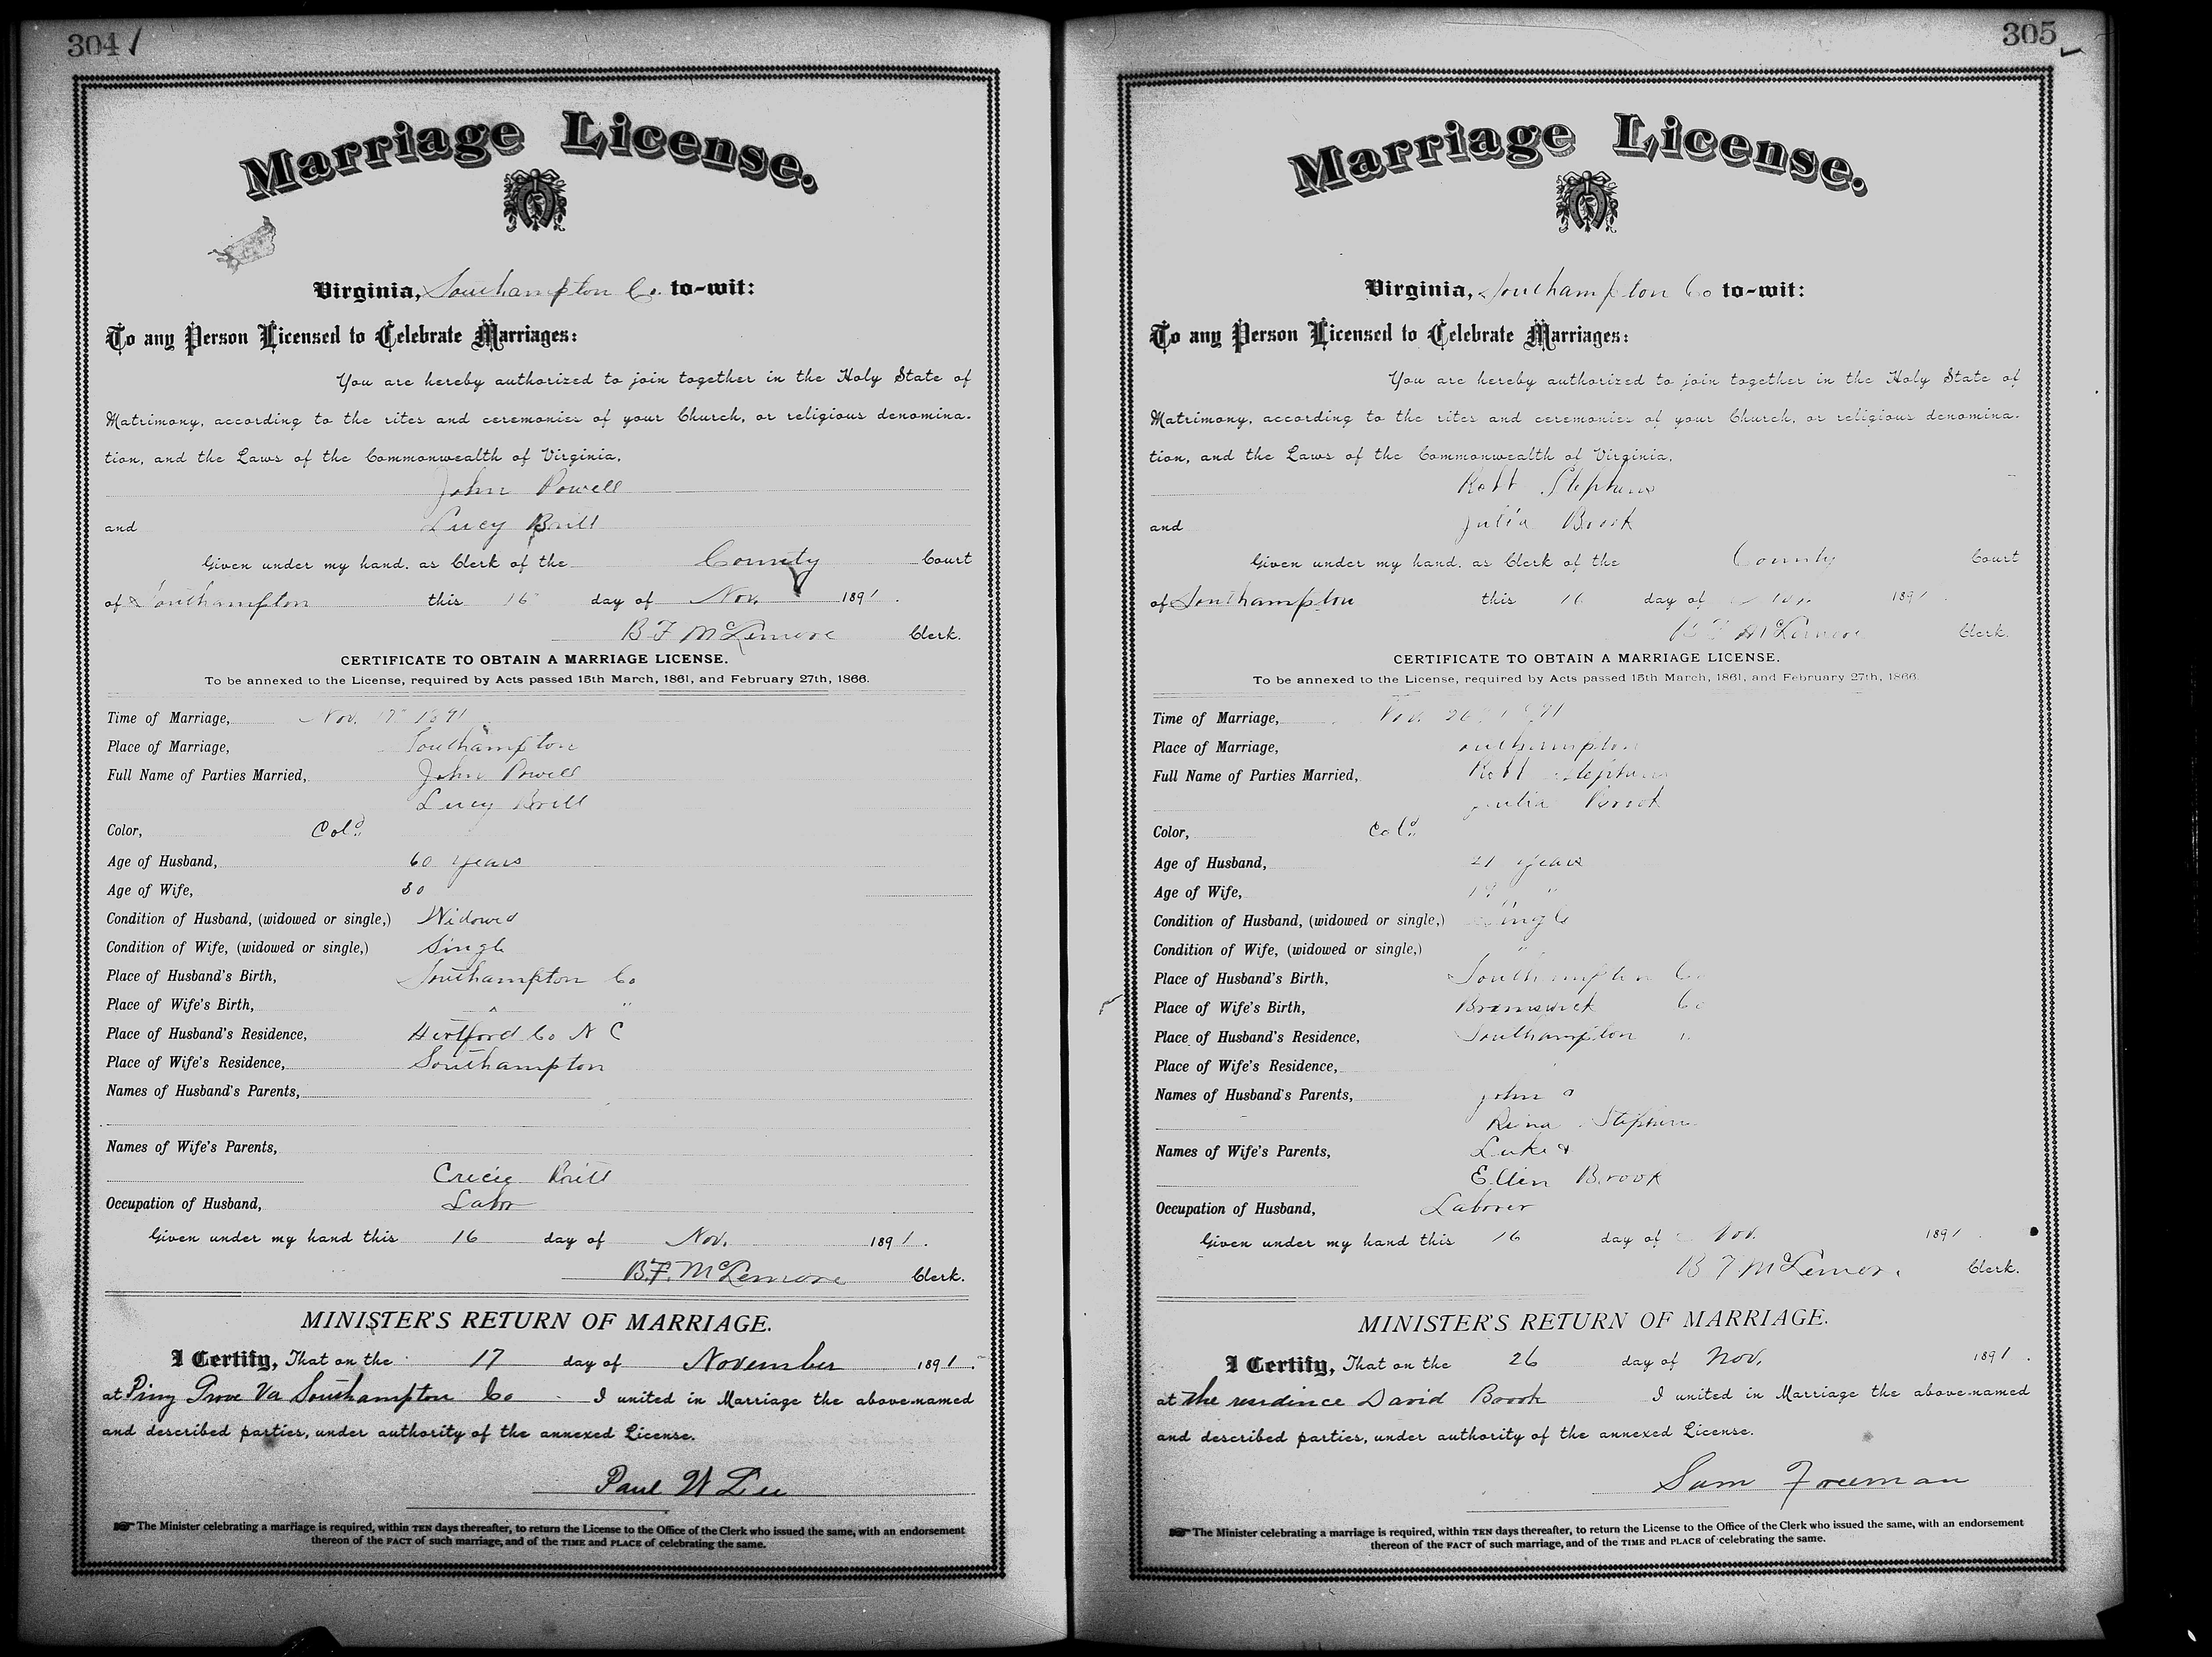 304
Marriage License.
Virginia, Southampton Co. to-wit:
To any Person Licensed to Celebrate Marriages:
You are hereby authorized to join together in the Holy State of
Matrimony, according to the rites and ceremonies of your Church, or religious denomina-
tion, and the Laws of the Commonwealth of Virginia,
John Powell
and Lucy Brill
Given under my hand, as Clerk of the County Court
of Southampton this 16 day of Nov. 1891.
B. F. McLemore Clerk.
CERTIFICATE TO OBTAIN A MARRIAGE LICENSE.
To be annexed to the License, required by Acts passed 15th March, 1861, and February 27th, 1866.
Time of Marriage, Nov. 17" 1891
Place of Marriage, Southampton
Full Name of Parties Married, John Powell
Lucy Brill
Color, Cold.
Age of Husband, 60 years
Age of Wife,
Condition of Husband, (widowed or single,) Widowed
Condition of Wife, (widowed or single,) Single
Place of Husband's Birth, Southampton Co
Place of Wife's Birth, " "
Place of Husband's Residence, Hertford Co N C
Place of Wife's Residence, Southampton
Names of Husband's Parents,
Names of Wife's Parents,
Brill
Occupation of Husband, Labor
Given under my hand this 16 day of Nov. 1891.
B. F. McLemore Clerk.
MINISTER'S RETURN OF MARRIAGE.
I Certify, That on the 17 day of November 1891.
at Piny Grove Va Southampton Co I united in Marriage the above-named
and described parties, under authority of the annexed License.
Paul W Lee
The Minister celebrating a marriage is required, within TEN days thereafter, to return the License to the Office of the Clerk who issued the same, with an endorsement
thereon of the FACT of such marriage, and of the TIME and PLACE of celebrating the same.
305
Marriage License.
Virginia, Southampton Co to-wit:
To any Person Licensed to Celebrate Marriages:
You are hereby authorized to join together in the Holy State of
Matrimony, according to the rites and ceremonies of your Church, or religious denomina-
tion, and the Laws of the Commonwealth of Virginia,
Robt Stephens
and Julia Brook
Given under my hand, as Clerk of the County Court
of Southampton this 16 day of Nov. 1891.
B F McLemore Clerk.
CERTIFICATE TO OBTAIN A MARRIAGE LICENSE.
To be annexed to the License, required by Acts passed 15th March, 1861, and February 27th, 1866.
Time of Marriage, Nov. 26" 1891
Place of Marriage, Southampton
Full Name of Parties Married, Robt Stephens
Julia Brook
Color, Cold.
Age of Husband, 21 years
Age of Wife, "
Condition of Husband, (widowed or single,) Single
Condition of Wife, (widowed or single,) "
Place of Husband's Birth, Southampton Co
Place of Wife's Birth, Brunswick Co
Place of Husband's Residence, Southampton "
Place of Wife's Residence,
Names of Husband's Parents, John &
Rina Stephens
Names of Wife's Parents, Luke &
Ellen Brook
Occupation of Husband, Laborer
Given under my hand this 16 day of Nov. 1891
B F McLemore Clerk.
MINISTER'S RETURN OF MARRIAGE.
I Certify, That on the 26 day of Nov. 1891.
at the residence David Brook I united in Marriage the above-named
and described parties, under authority of the annexed License.
Sam Freeman
The Minister celebrating a marriage is required, within TEN days thereafter, to return the License to the Office of the Clerk who issued the same, with an endorsement
thereon of the FACT of such marriage, and of the TIME and PLACE of celebrating the same.